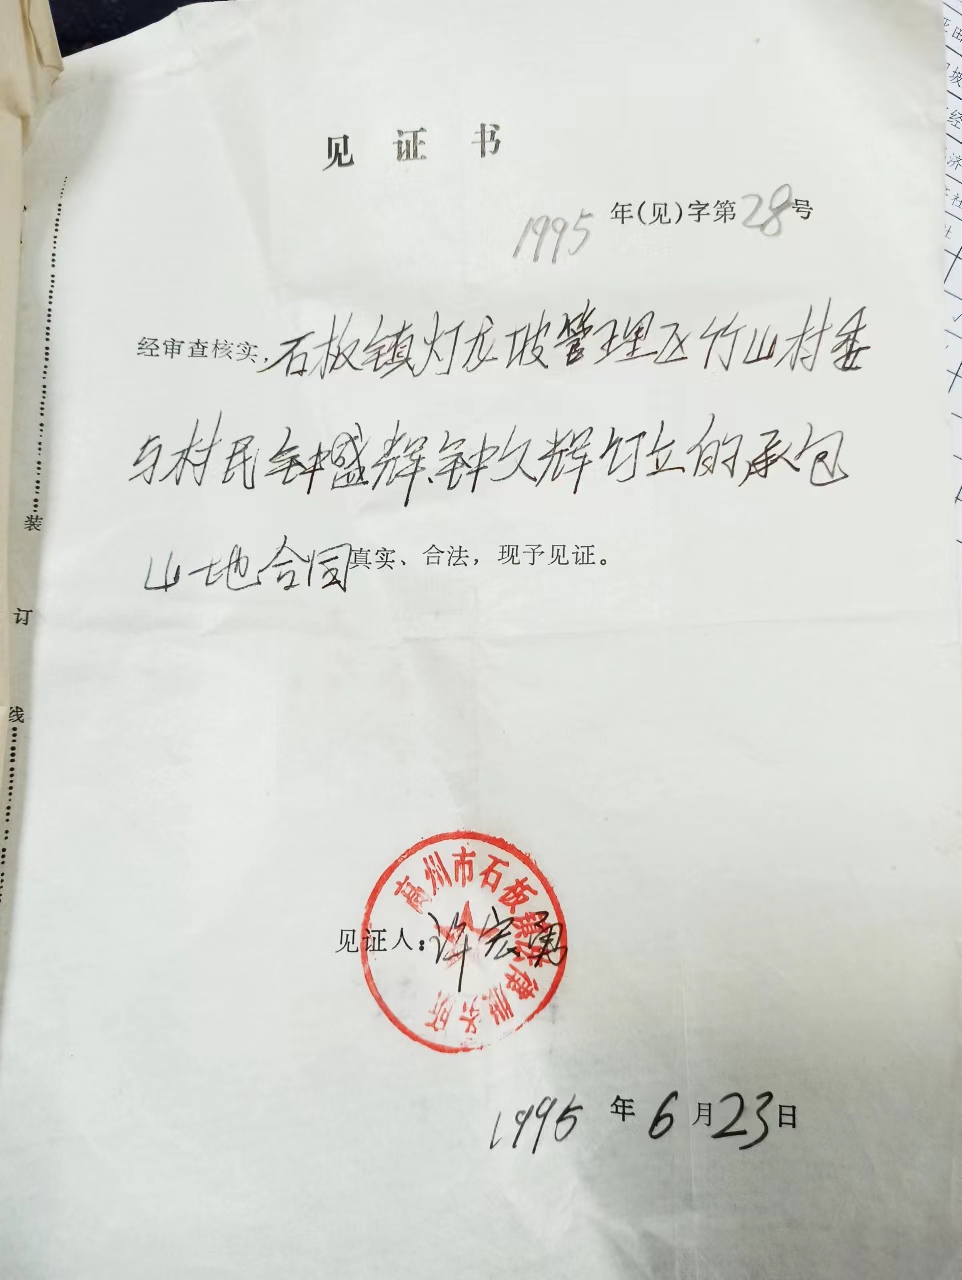 见证书
1995年(见)字第28号
经审查核实,石板镇灯龙坡管理区竹山村委
与村民钟盛辉、钟久辉订立的承包
山地合同真实、合法，现予见证。
装
订
线
高州市石板镇法律服务所
见证人:许宏勇
1995年6月23日